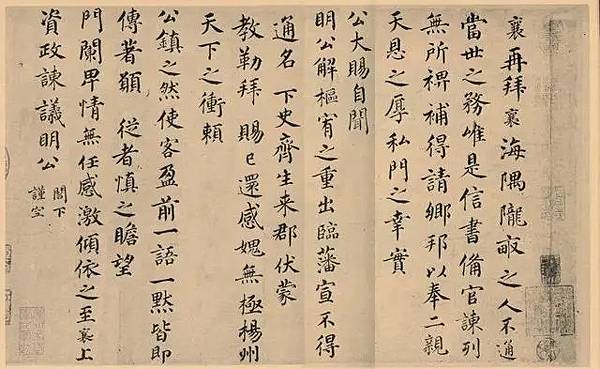 襄再拜襄海隅隴畝之人不通
當世之務唯是信書備官諫列
無所裨補得請鄉邦以奉二親
天恩之厚私門之幸實
公大賜自聞
明公解樞宥之重出臨藩宣不得
通名 下史齊生来郡伏蒙
教勒拜賜已還感媿無極楊州
天下之衝賴
公鎮之然使客盈前一語一默皆即
傳著願 從者慎之瞻望
門闌卑情無任感激傾依之至襄上
資政諫議明公 閤下
謹空